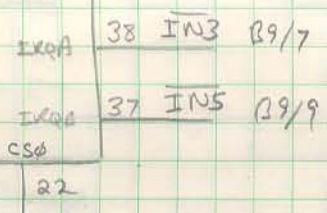 IRQA 38 IN3 B9/7
IRQB 37 IN5 B9/9
CSØ
22